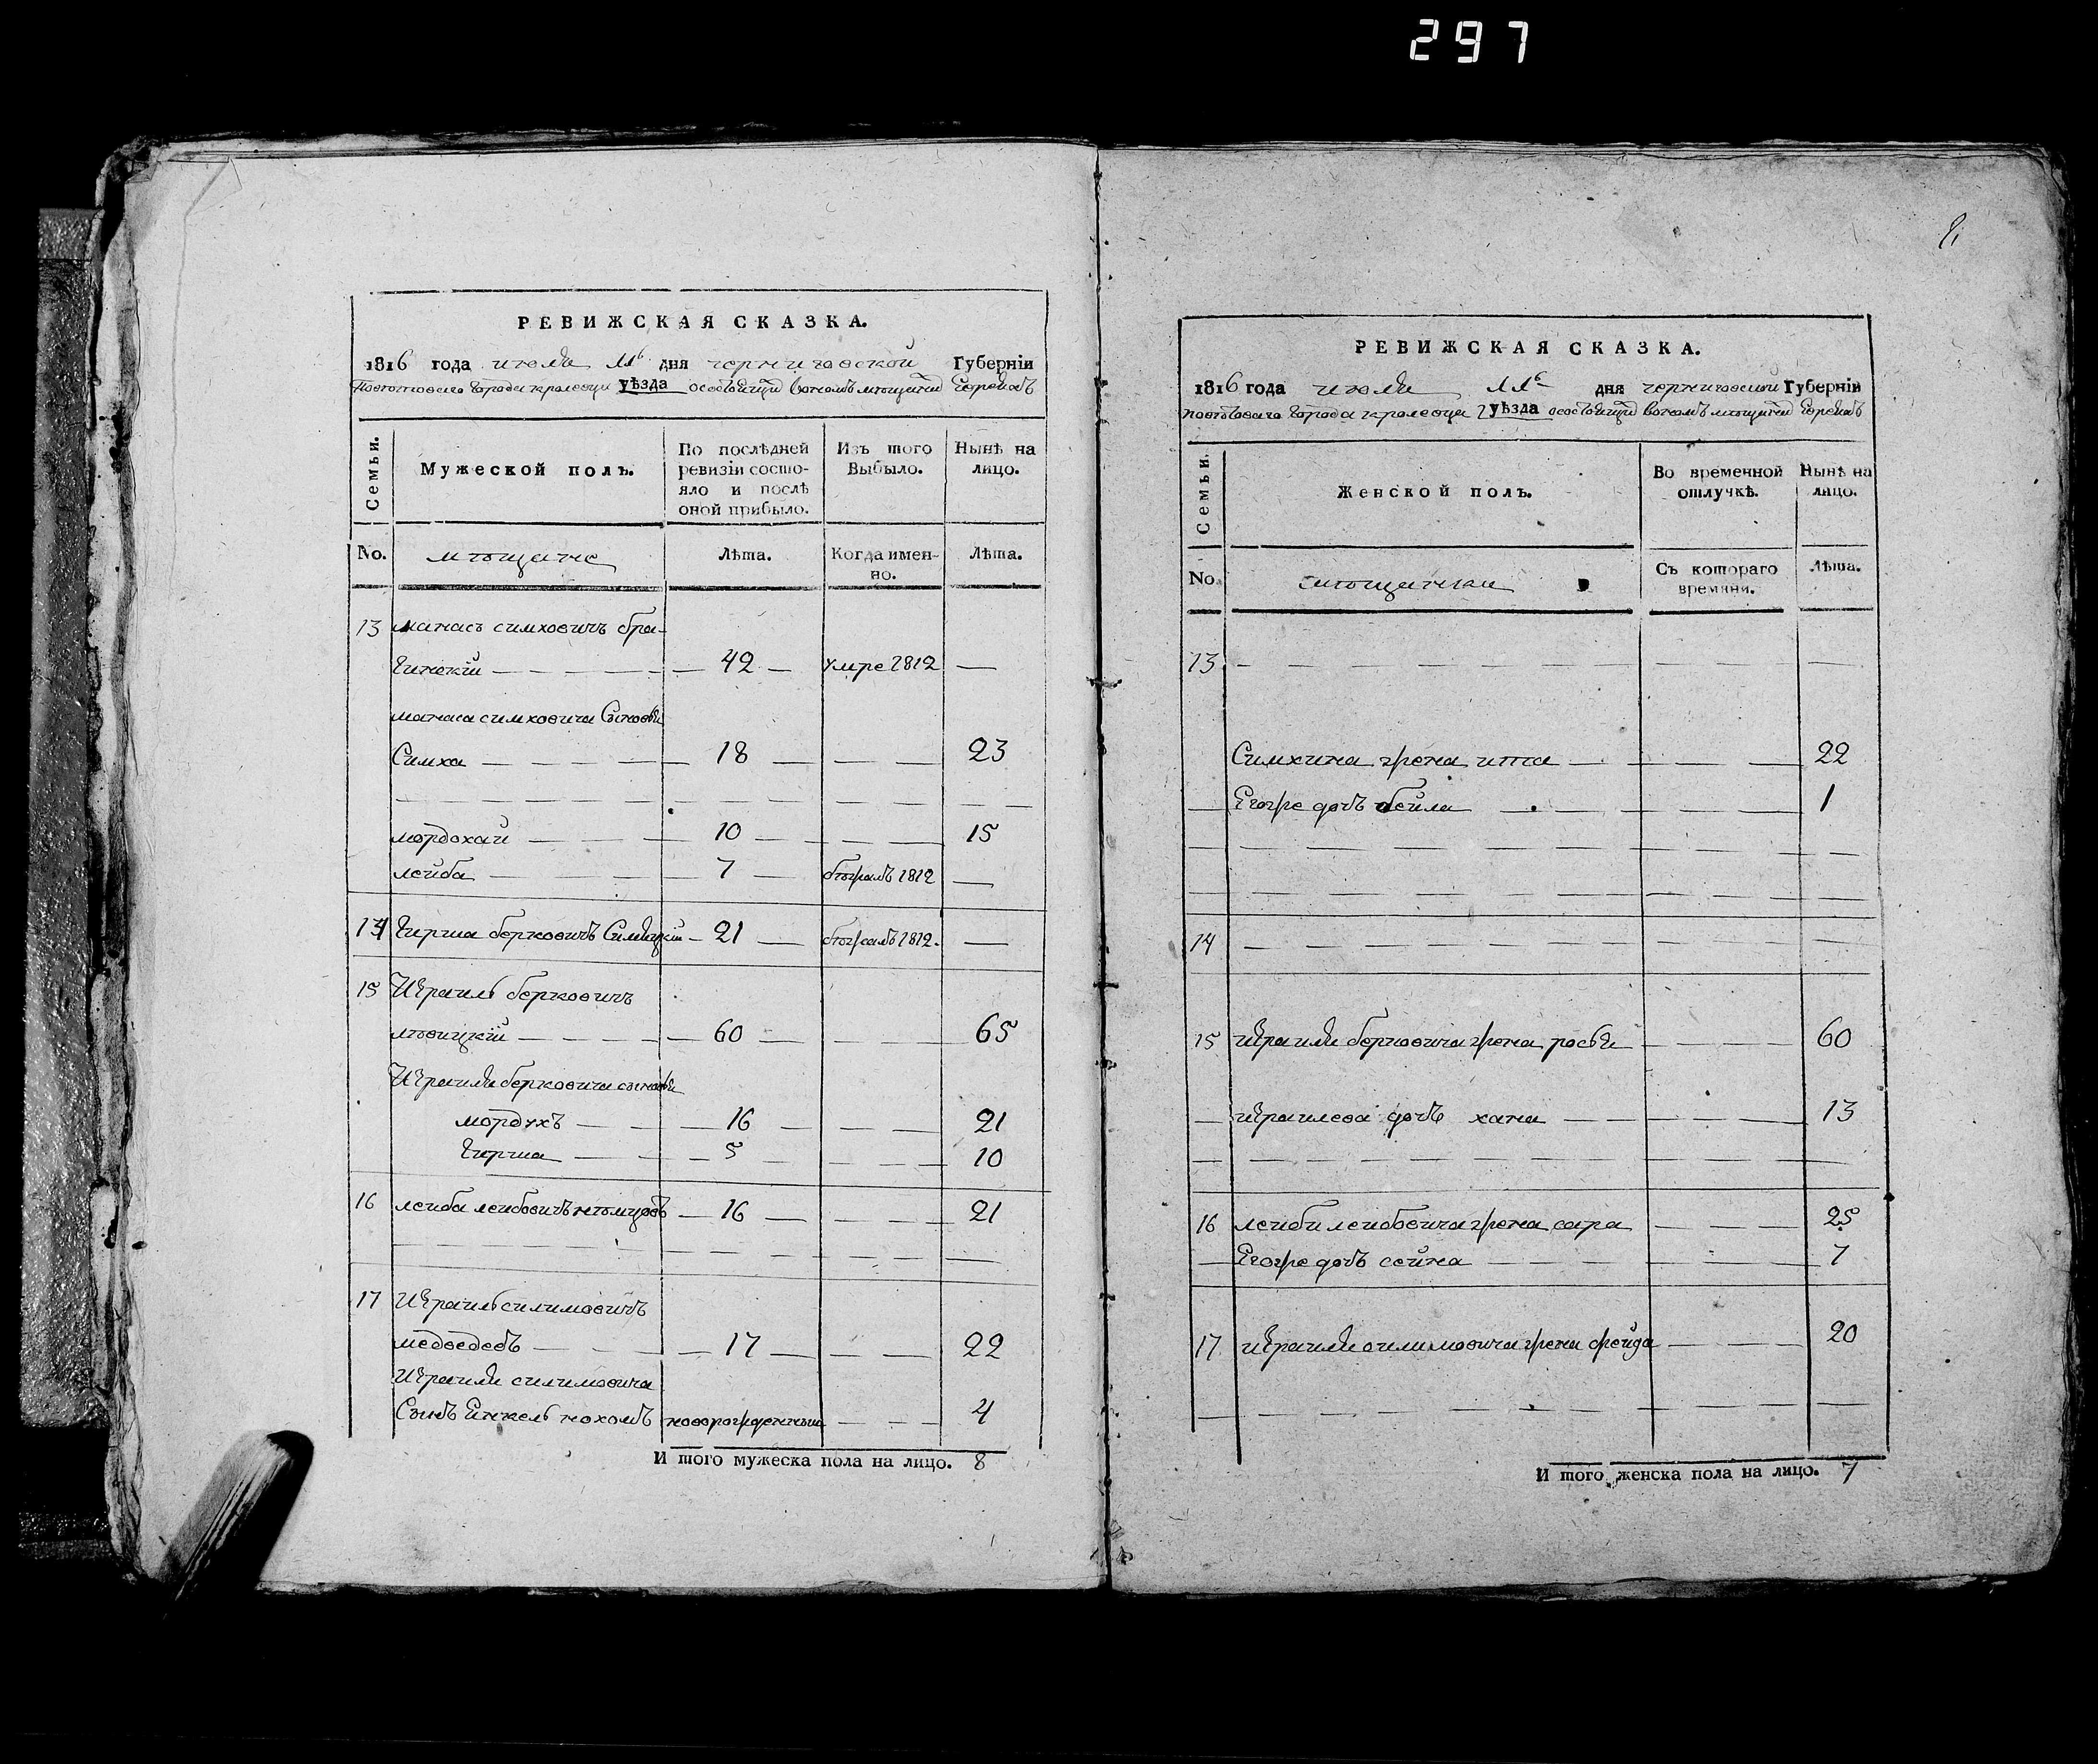 297
РЕВИЖСКАЯ СКАЗКА.
1816 года июля 11 дня черниговской Губерніи
города кролевца уѣзда осостоящихъ вономъ мѣщанъ Евреяхъ
Семьи.
Мужеской полъ.
По послѣдней ревизіи состо-
яло и послѣ
оной прибыло.
Изъ того
Выбыло.
Нынѣ на
лицо.
No. мѣщане Лѣта. Когда имен-
но. Лѣта.
13 манасъ симховичъ бра-
гинскій 42 умре 1812
манаса симховича Сыновья
Симха 18 23
мордохай 10 15
лейба 7 бѣжалъ 1812
14 Гирша берковичъ 21 бѣжалъ 1812
15 Израиль берковичъ
60 65
Израиля берковича сыновья
мордухъ 16 21
Гирша 5 10
16 лейба лейбовичъ 16 21
17 Израиль силимовичъ
медведевъ 17 22
Израиля силимовича
Сынъ Янкель нохомъ новорожденный 4
И того мужеска пола на лицо. 8
РЕВИЖСКАЯ СКАЗКА.
1816 года июля 11 дня черниговской Губерніи
города кролевца уѣзда осостоящихъ вономъ мѣщанъ Евреяхъ
Семьи.
Женской полъ.
Во временной
отлучкѣ.
Нынѣ на
лицо.
No. мѣщанки Съ котораго
времяни. Лѣта.
13
Симхина жена ита 22
Егоже дочь бейла 1
14
15 израиля берковича жена 60
израилева дочь хана 13
16 лейби лейбовича жена сара 25
Егоже дочь сейна 7
17 израиля силимовича жена фрейда 20
И того женска пола на лицо. 7